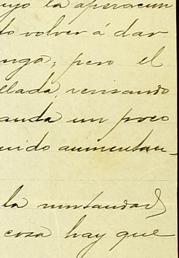 la operacion
do volver á dar
nga, pero el
llada, revisando
anda un poco
uido aumentan-
la
cosa hay que